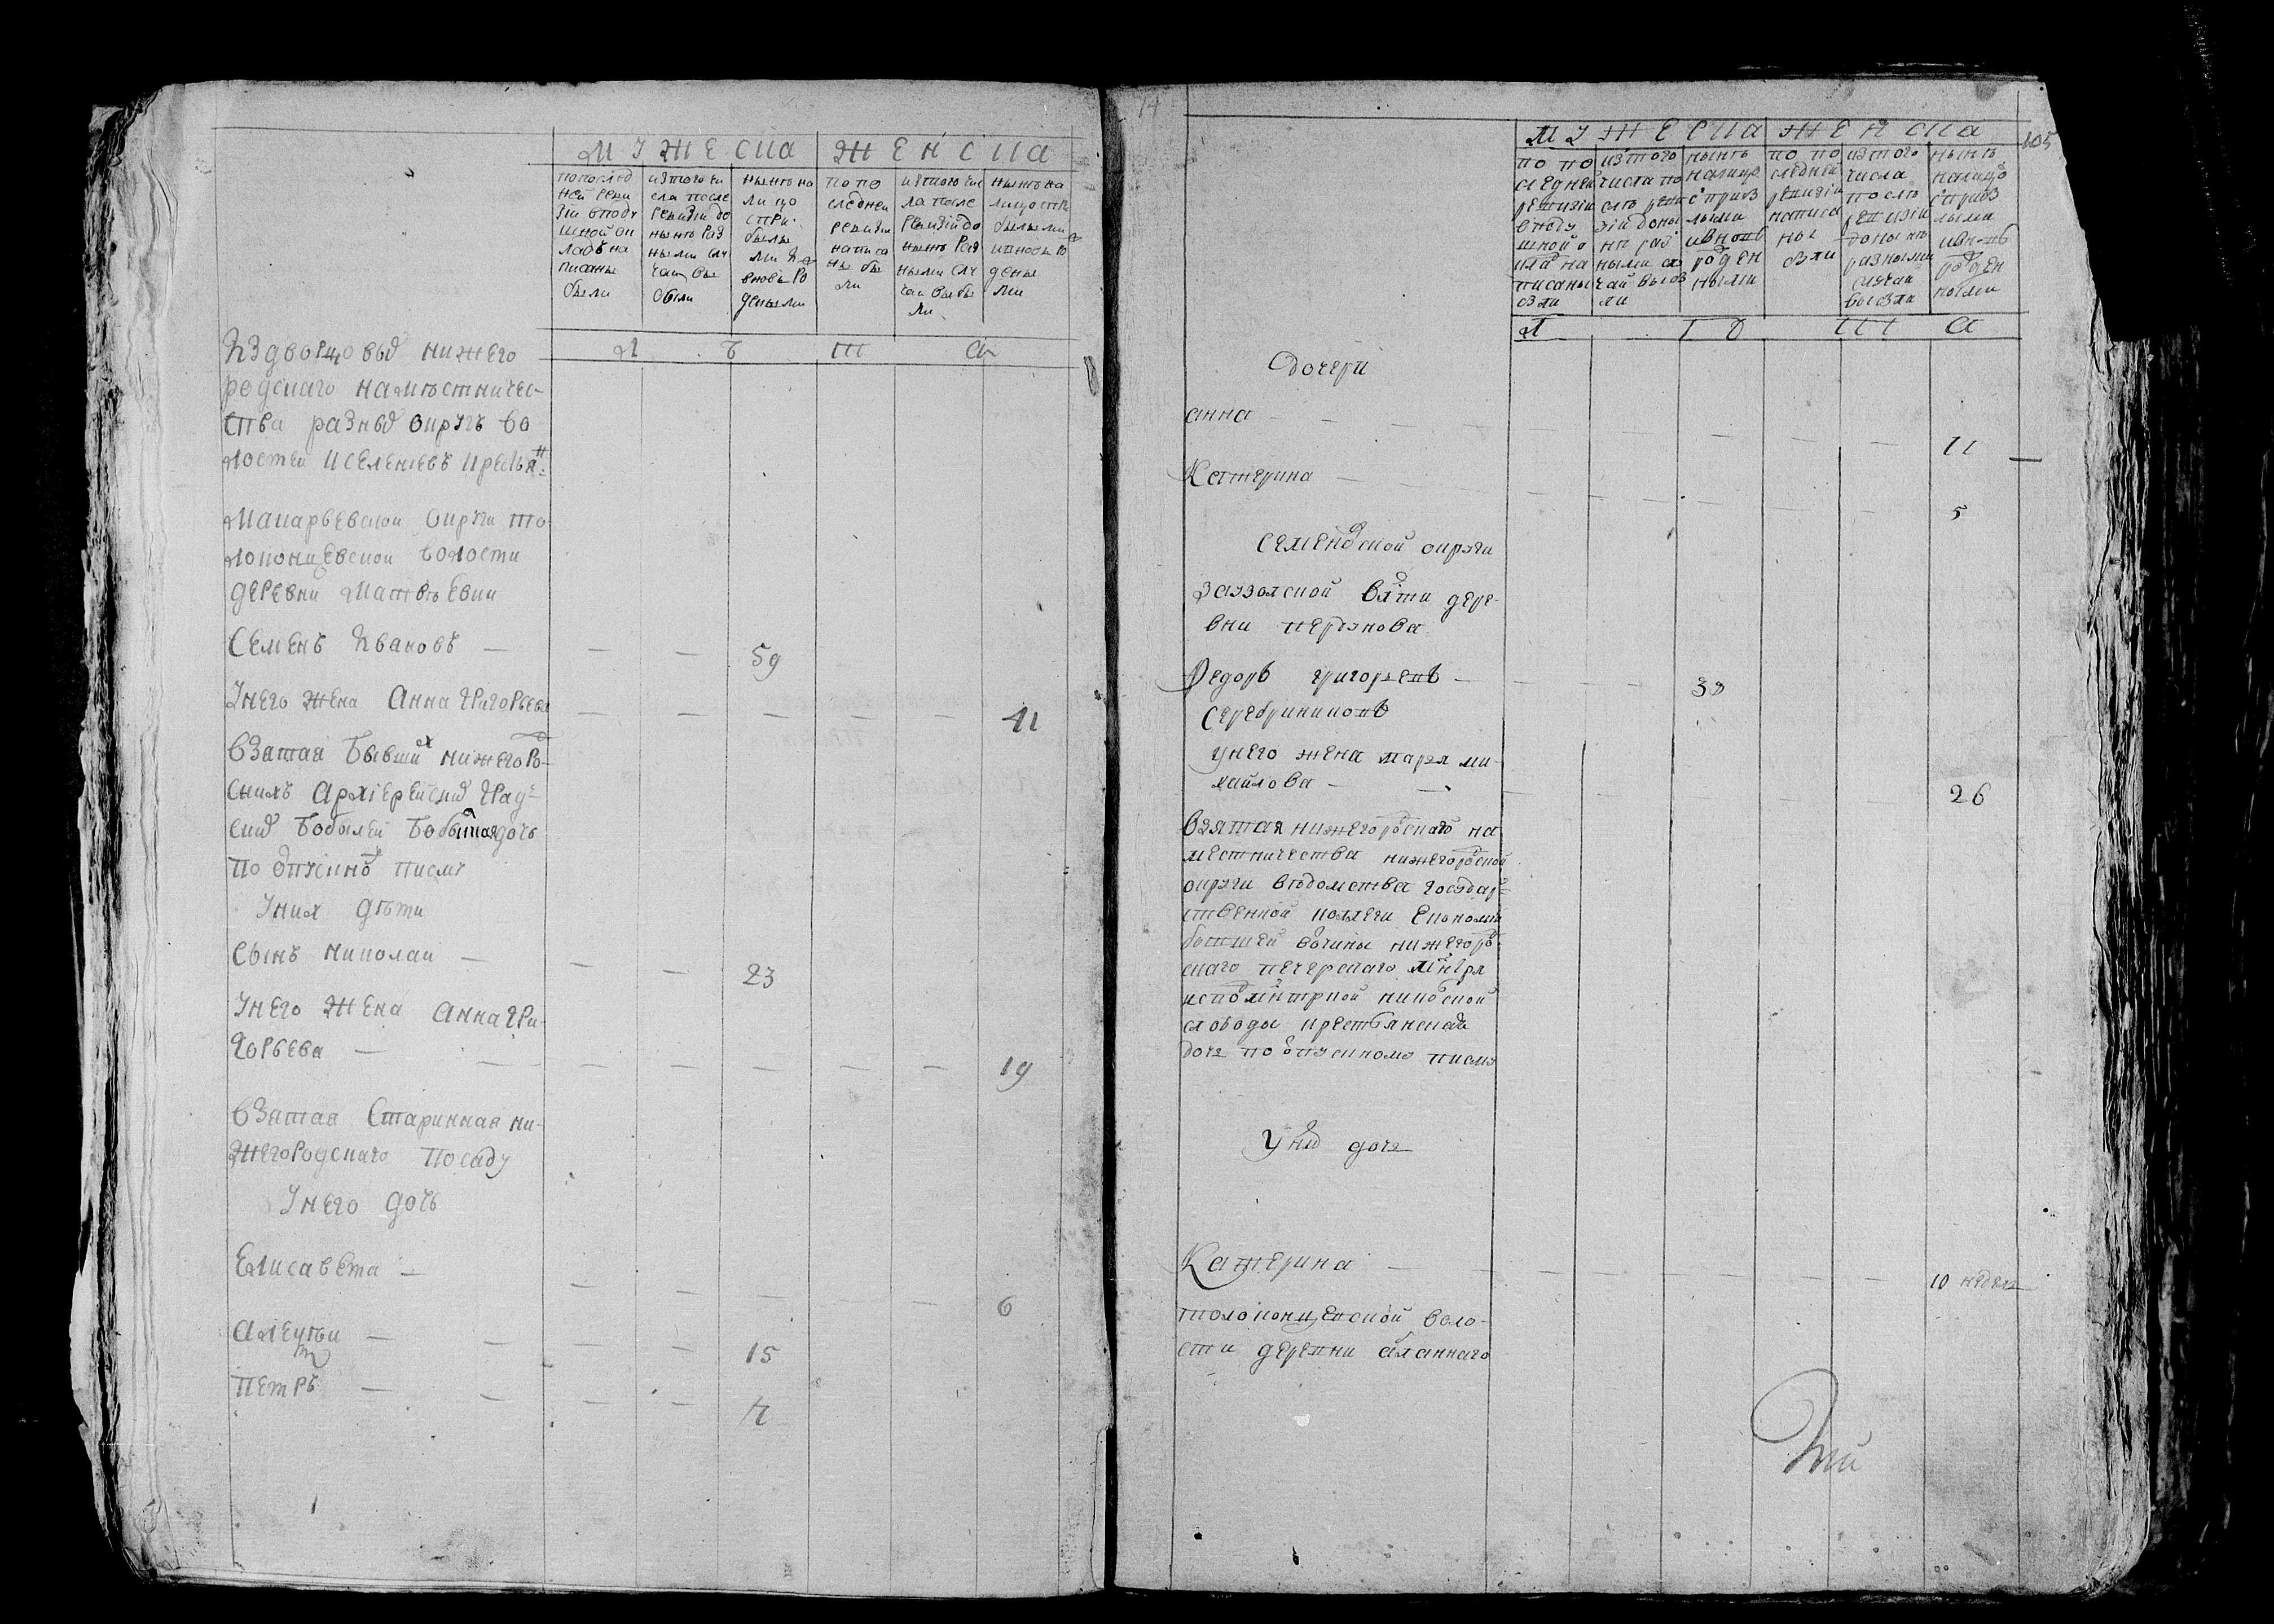 Мужеска Женска
попослед
ней реви
зии вподу
шной ок
ладъ на
писаны
были
изтого чи
сла после
ревизiи до
нынѣ раз
ными слу
чаи вы
были
нынѣ на
лицо
спри
былы
ми и
вновь ро
жденными
по по
следней
ревизи
написа
ны бы
ли
изтого чи
ла после
ревизiи до
нынѣ раз
ными слу
чаи выбы
ли
нынѣ на
лицо спри
былыми
ивновь ро
ж­дены
ми
Лѣта
Издворцовых нижего
родскаго намѣстничес-
тва разных округъ во
лостей иселениевъ крестьян
Макарьевской округи то
локонцевской волости
деревни Матвѣевки
Семенъ Ивановъ — — — 59
Унего жена Анна Григорьева — — — — — 41
взятая бывших нижегоро
скихъ Архiерейских град
ских бобылей бобылкая дочь
по отпускнъ писму
Уних дѣти
Сынъ николай — — — 23
Унего жена Анна Гри
горьева — — — — — — — 19
взятая Старинная ни
жегородскаго посаду
Унего дочь
Елисавета — — — — — — 6
Алексѣи — — — — 15
Петръ — — — — 4
105
Мужеска Женска
по по
следней
ревизiи
вподу
шной о
кла на
писаны
были
изтого
числа по
слѣ реви
зiи доны
нѣ раз
ными слу
чаи выбы
ли
нынѣ
налицо
сприб
лыми
ивновъ
рожден
ными
по по
следней
ревизiи
написа
ны
были
изтого
числа
послѣ
ревизiи
донынѣ
разными
случаи
выбыли
нынѣ
налицо
сприб
лыми
ивновъ
рожден
ными
Лѣта
дочери
анна — — — — — — 11
Катерина — — — — — — 5
семеновской округи
заузолской влсти дере-
вни
Федоръ григорьевъ — — — 38
серебриниковъ
Унего жена марья ми-
хайлова — — — — — — 26
взятая нижегородскаго на
местничества нижегородской
округи вѣдомства государ-
ственной колегiи економiи
бывшей вочины нижегород
скаго печерскаго мнстря
исподмнстрной
слободы крестьянская
дочь по отпускному писму
Уних дочь
Катерина — — — — — — 10 недель
толоконцевской воло-
сти деревни